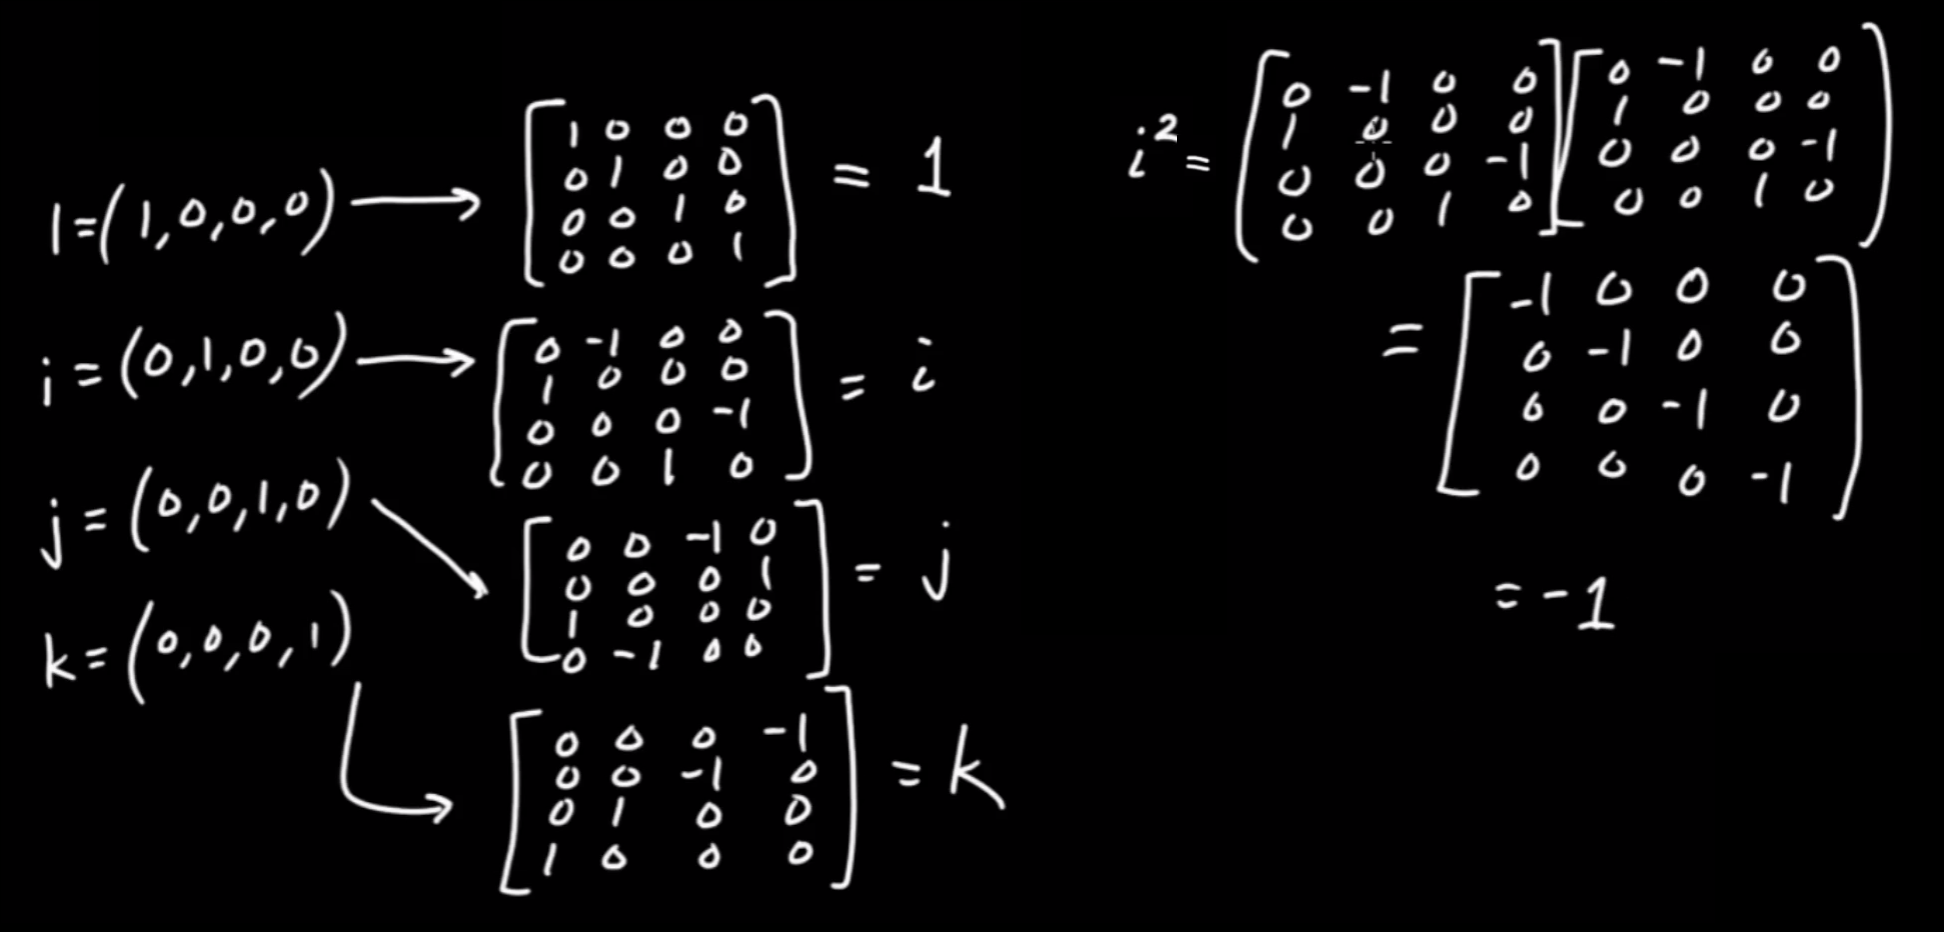 1 = (1, 0, 0, 0) → [1 0 0 0
0 1 0 0
0 0 1 0
0 0 0 1] = 1
i = (0, 1, 0, 0) → [0 -1 0 0
1 0 0 0
0 0 0 -1
0 0 1 0] = i
j = (0, 0, 1, 0) → [0 0 -1 0
0 0 0 1
1 0 0 0
0 -1 0 0] = j
k = (0, 0, 0, 1) → [0 0 0 -1
0 0 -1 0
0 1 0 0
1 0 0 0] = k
i² = [0 -1 0 0] [0 -1 0 0]
1 0 0 0 1 0 0 0
0 0 0 -1 0 0 0 -1
0 0 1 0 0 0 1 0
= [-1 0 0 0
0 -1 0 0
0 0 -1 0
0 0 0 -1]
= -1